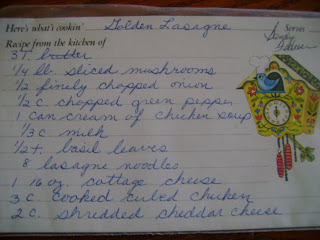 Here's what's cookin' Golden Lasagne Serves
Recipe from the kitchen of Sandy
3 T. butter
1/4 lb. sliced mushrooms
1/2 finely chopped onion
1/2 c. chopped green pepper
1 can cream of chicken soup
1/3 c milk
1/2 t. basil leaves
8 lasagne noodles
1 16 oz. cottage cheese
3 c. cooked cubed chicken
2 c. shredded cheddar cheese